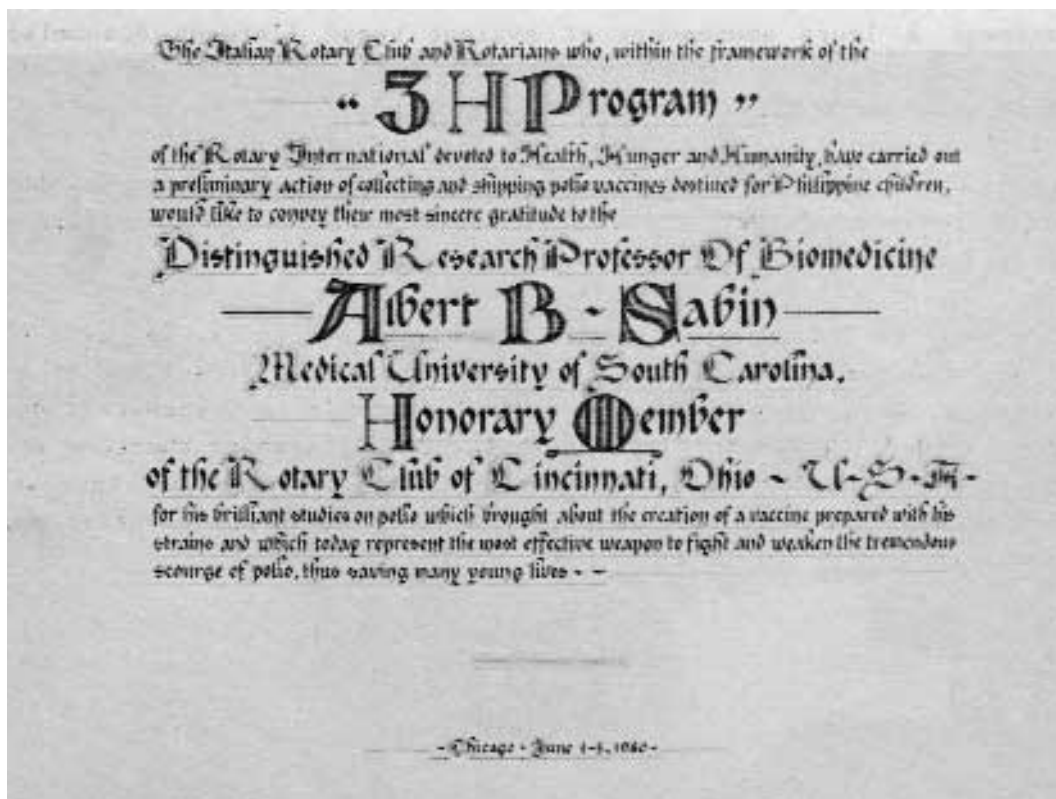 The Italian Rotary Club and Rotarians who, within the framework of the
“ 3 H Program ”
of the Rotary International devoted to Health, Hunger and Humanity, have carried out
a preliminary action of collecting and shipping polio vaccines destined for Philippine children,
would like to convey their most sincere gratitude to the
Distinguished Research Professor Of Biomedicine
Albert B - Sabin
Medical University of South Carolina.
Honorary Member
of the Rotary Club of Cincinnati, Ohio - U-S-A-
for his brilliant studies on polio which brought about the creation of a vaccine prepared with his
strains and which today represent the most effective weapon to fight and weaken the tremendous
scourge of polio, thus saving many young lives - -
- Chicago - June 1980 -